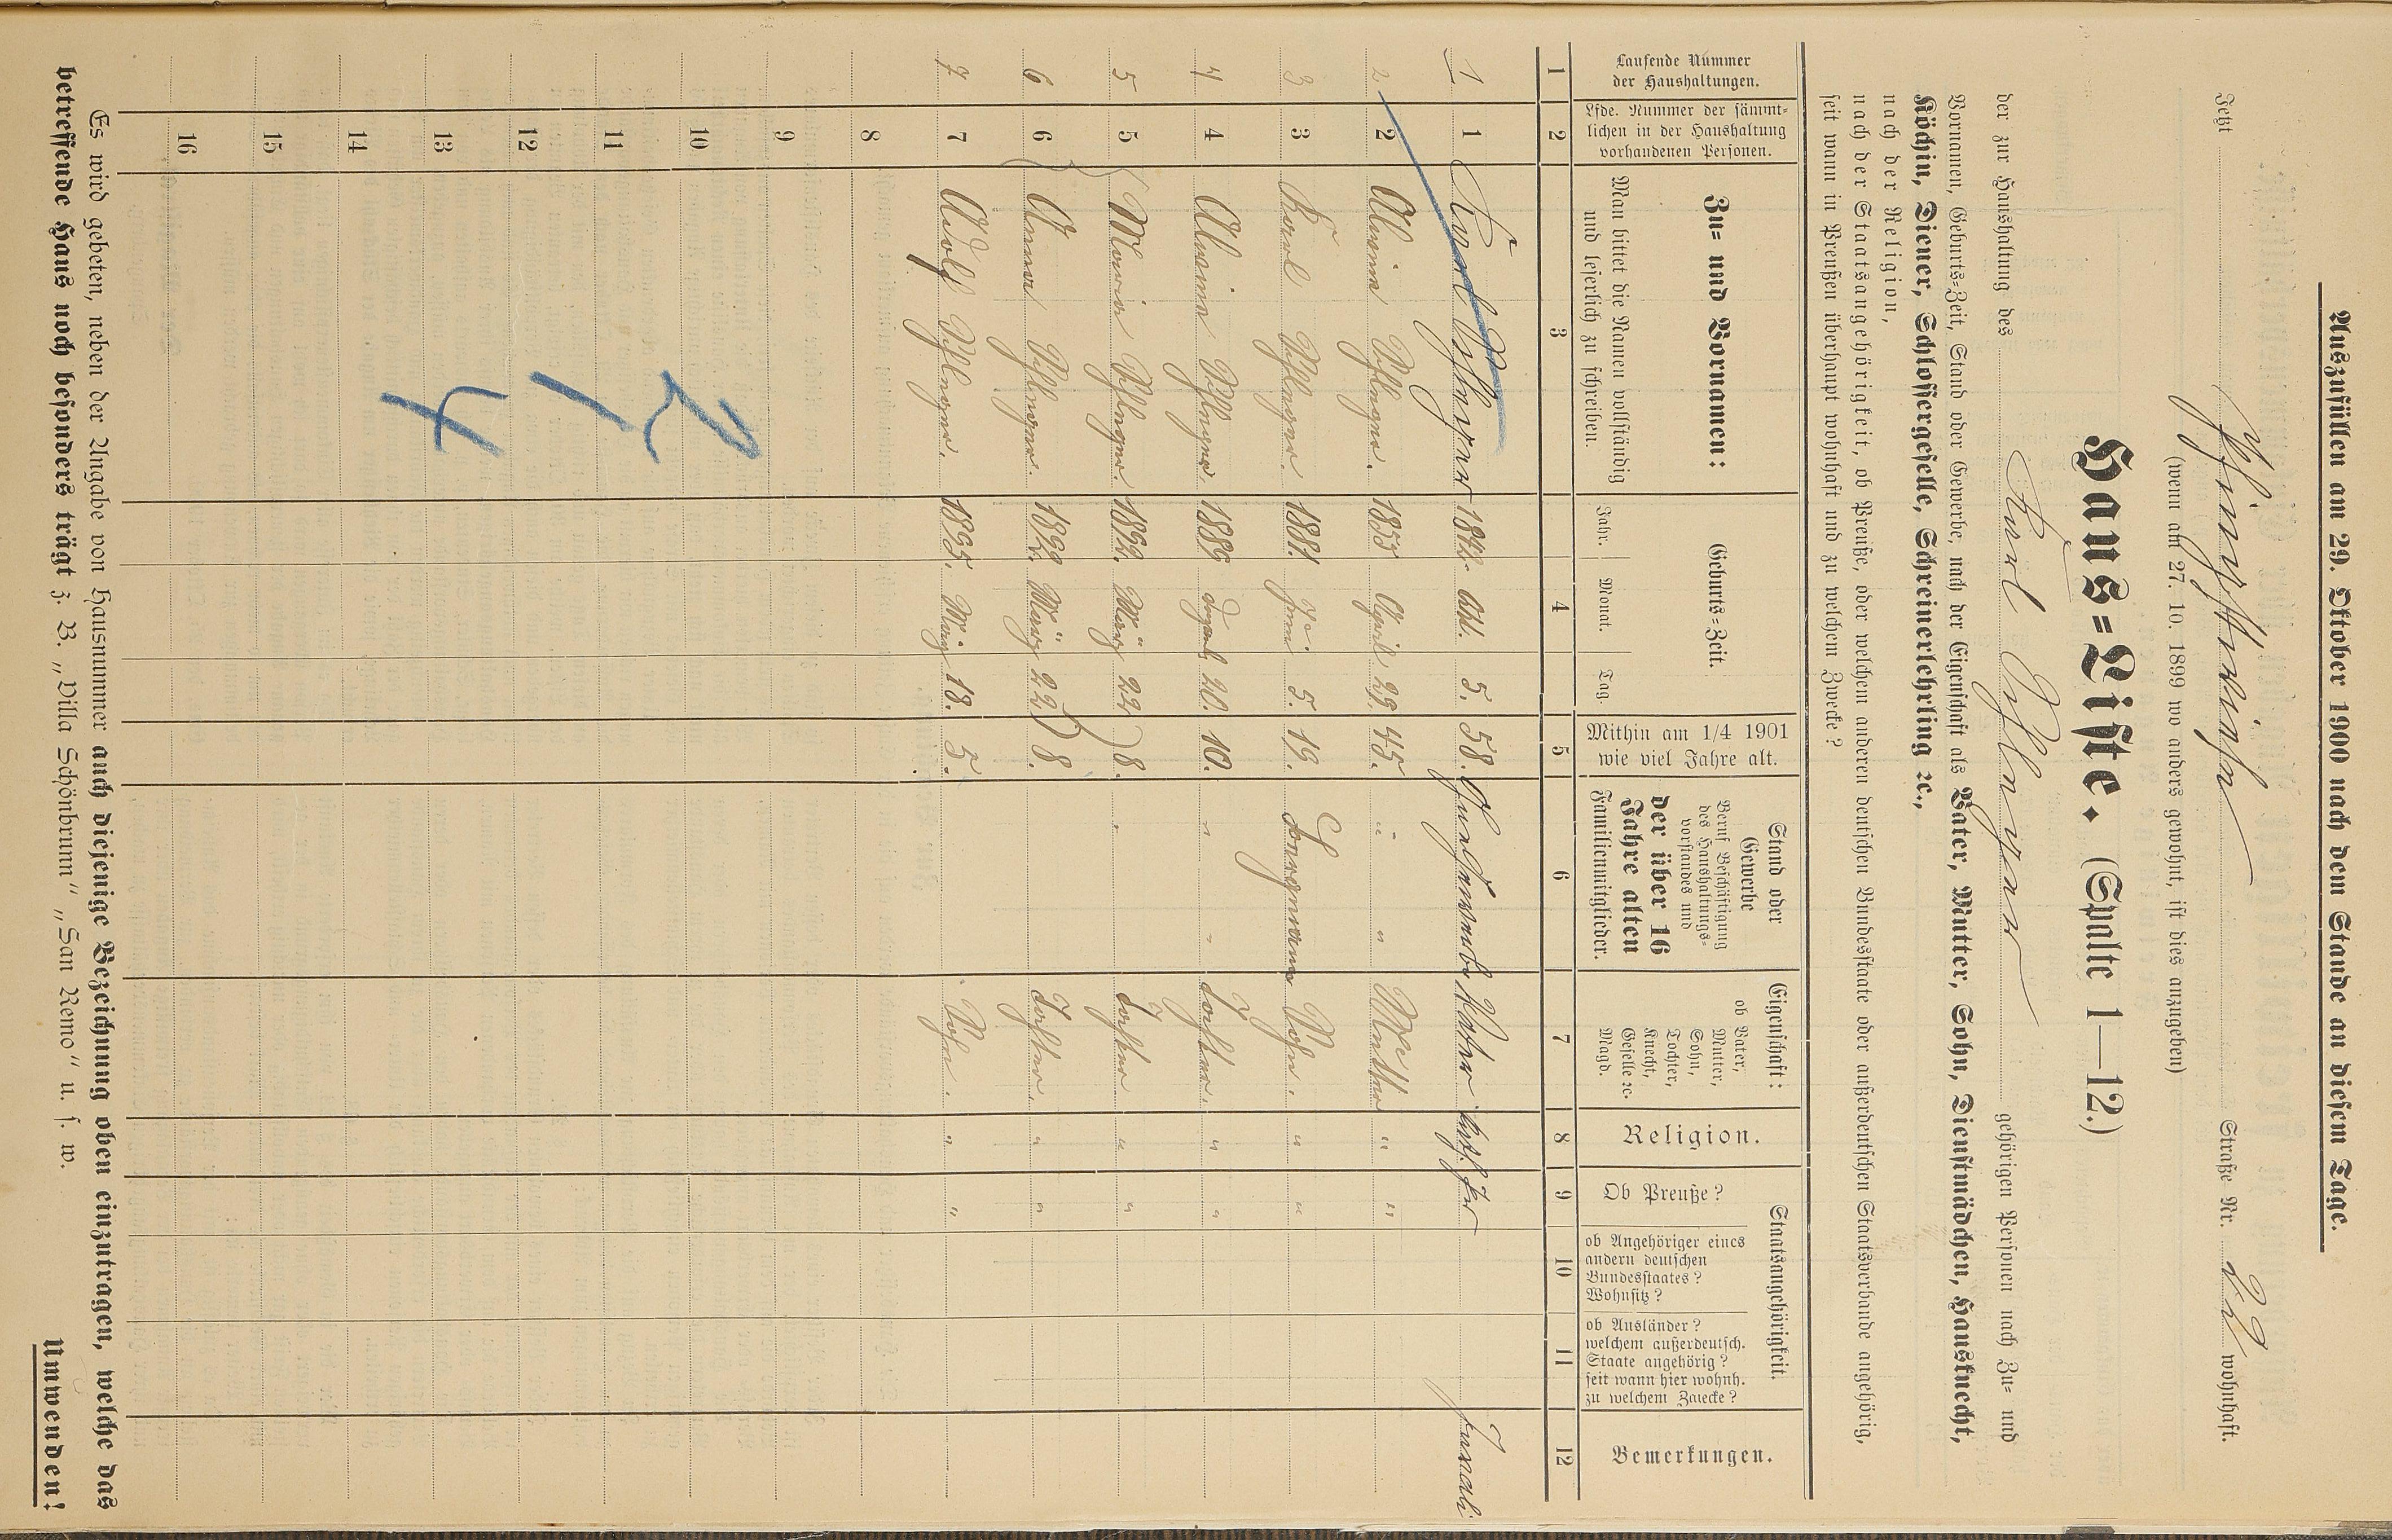 Auszufüllen am 29. Oktober 1900 nach dem Stande an diesem Tage.
Jetzt Straße Nr. 22 wohnhaft.
(wenn am 27. 10. 1899 wo anders gewohnt, ist dies anzugeben)
Haus=Liste. (Spalte 1—12.)
der zur Haushaltung des Karl gehörigen Personen nach Zu= und
Vornamen, Geburts=Zeit, Stand oder Gewerbe, nach der Eigenschaft als Vater, Mutter, Sohn, Dienstmädchen, Hausknecht,
Köchin, Diener, Schlossergeselle, Schreinerlehrling ꝛc.,
nach der Religion,
nach der Staatsangehörigkeit, ob Preuße, oder welchem anderen deutschen Bundesstaate oder außerdeutschen Staatsverbande angehörig,
seit wann in Preußen überhaupt wohnhaft und zu welchem Zwecke?
Laufende Nummer der Haushaltungen.
Lfde. Nummer der sämmt=lichen in der Haushaltung vorhandenen Personen.
Zu= und Vornamen:
Man bittet die Namen vollständig und leserlich zu schreiben.
Geburts=Zeit.
Jahr. Monat. Tag.
Mithin am 1/4 1901 wie viel Jahre alt.
Stand oder Gewerbe
Beruf Beschäftigung des Haushaltungs=vorstandes und
der über 16 Jahre alten Familienmitglieder.
Eigenschaft:
ob Vater, Mutter, Sohn, Tochter, Knecht, Geselle ꝛc. Magd.
Religion.
Staatsangehörigkeit.
Ob Preuße?
ob Angehöriger eines andern deutschen Bundesstaates? Wohnsitz?
ob Ausländer? welchem außerdeutsch. Staate angehörig? seit wann hier wohnh. zu welchem Zwecke?
Bemerkungen.
1 2 3 4 5 6 7 8 9 10 11 12
1 1 Karl 1842 Okt. 5. 58. Vater
2 2 Alwina 1855 April 29. 45. " " Mutter " "
3 3 Karl 1881. Juni 5. 19. Sohn. " "
4 4 Alwine 1889 20. 10. " " Tochter. " "
5 5 Maria 1892. März 22. 8. Tochter " "
6 6 Anna 1892. März 22. 8. Tochter. " "
7 7 Adolf 1895. März 18. 5. Sohn. " "
8
9
10
11
12
13
14
15
16
Es wird gebeten, neben der Angabe von Hausnummer auch diejenige Bezeichnung oben einzutragen, welche das
betreffende Haus noch besonders trägt z. B. „Villa Schönbrunn“ „San Remo“ u. s. w.
Umwenden!